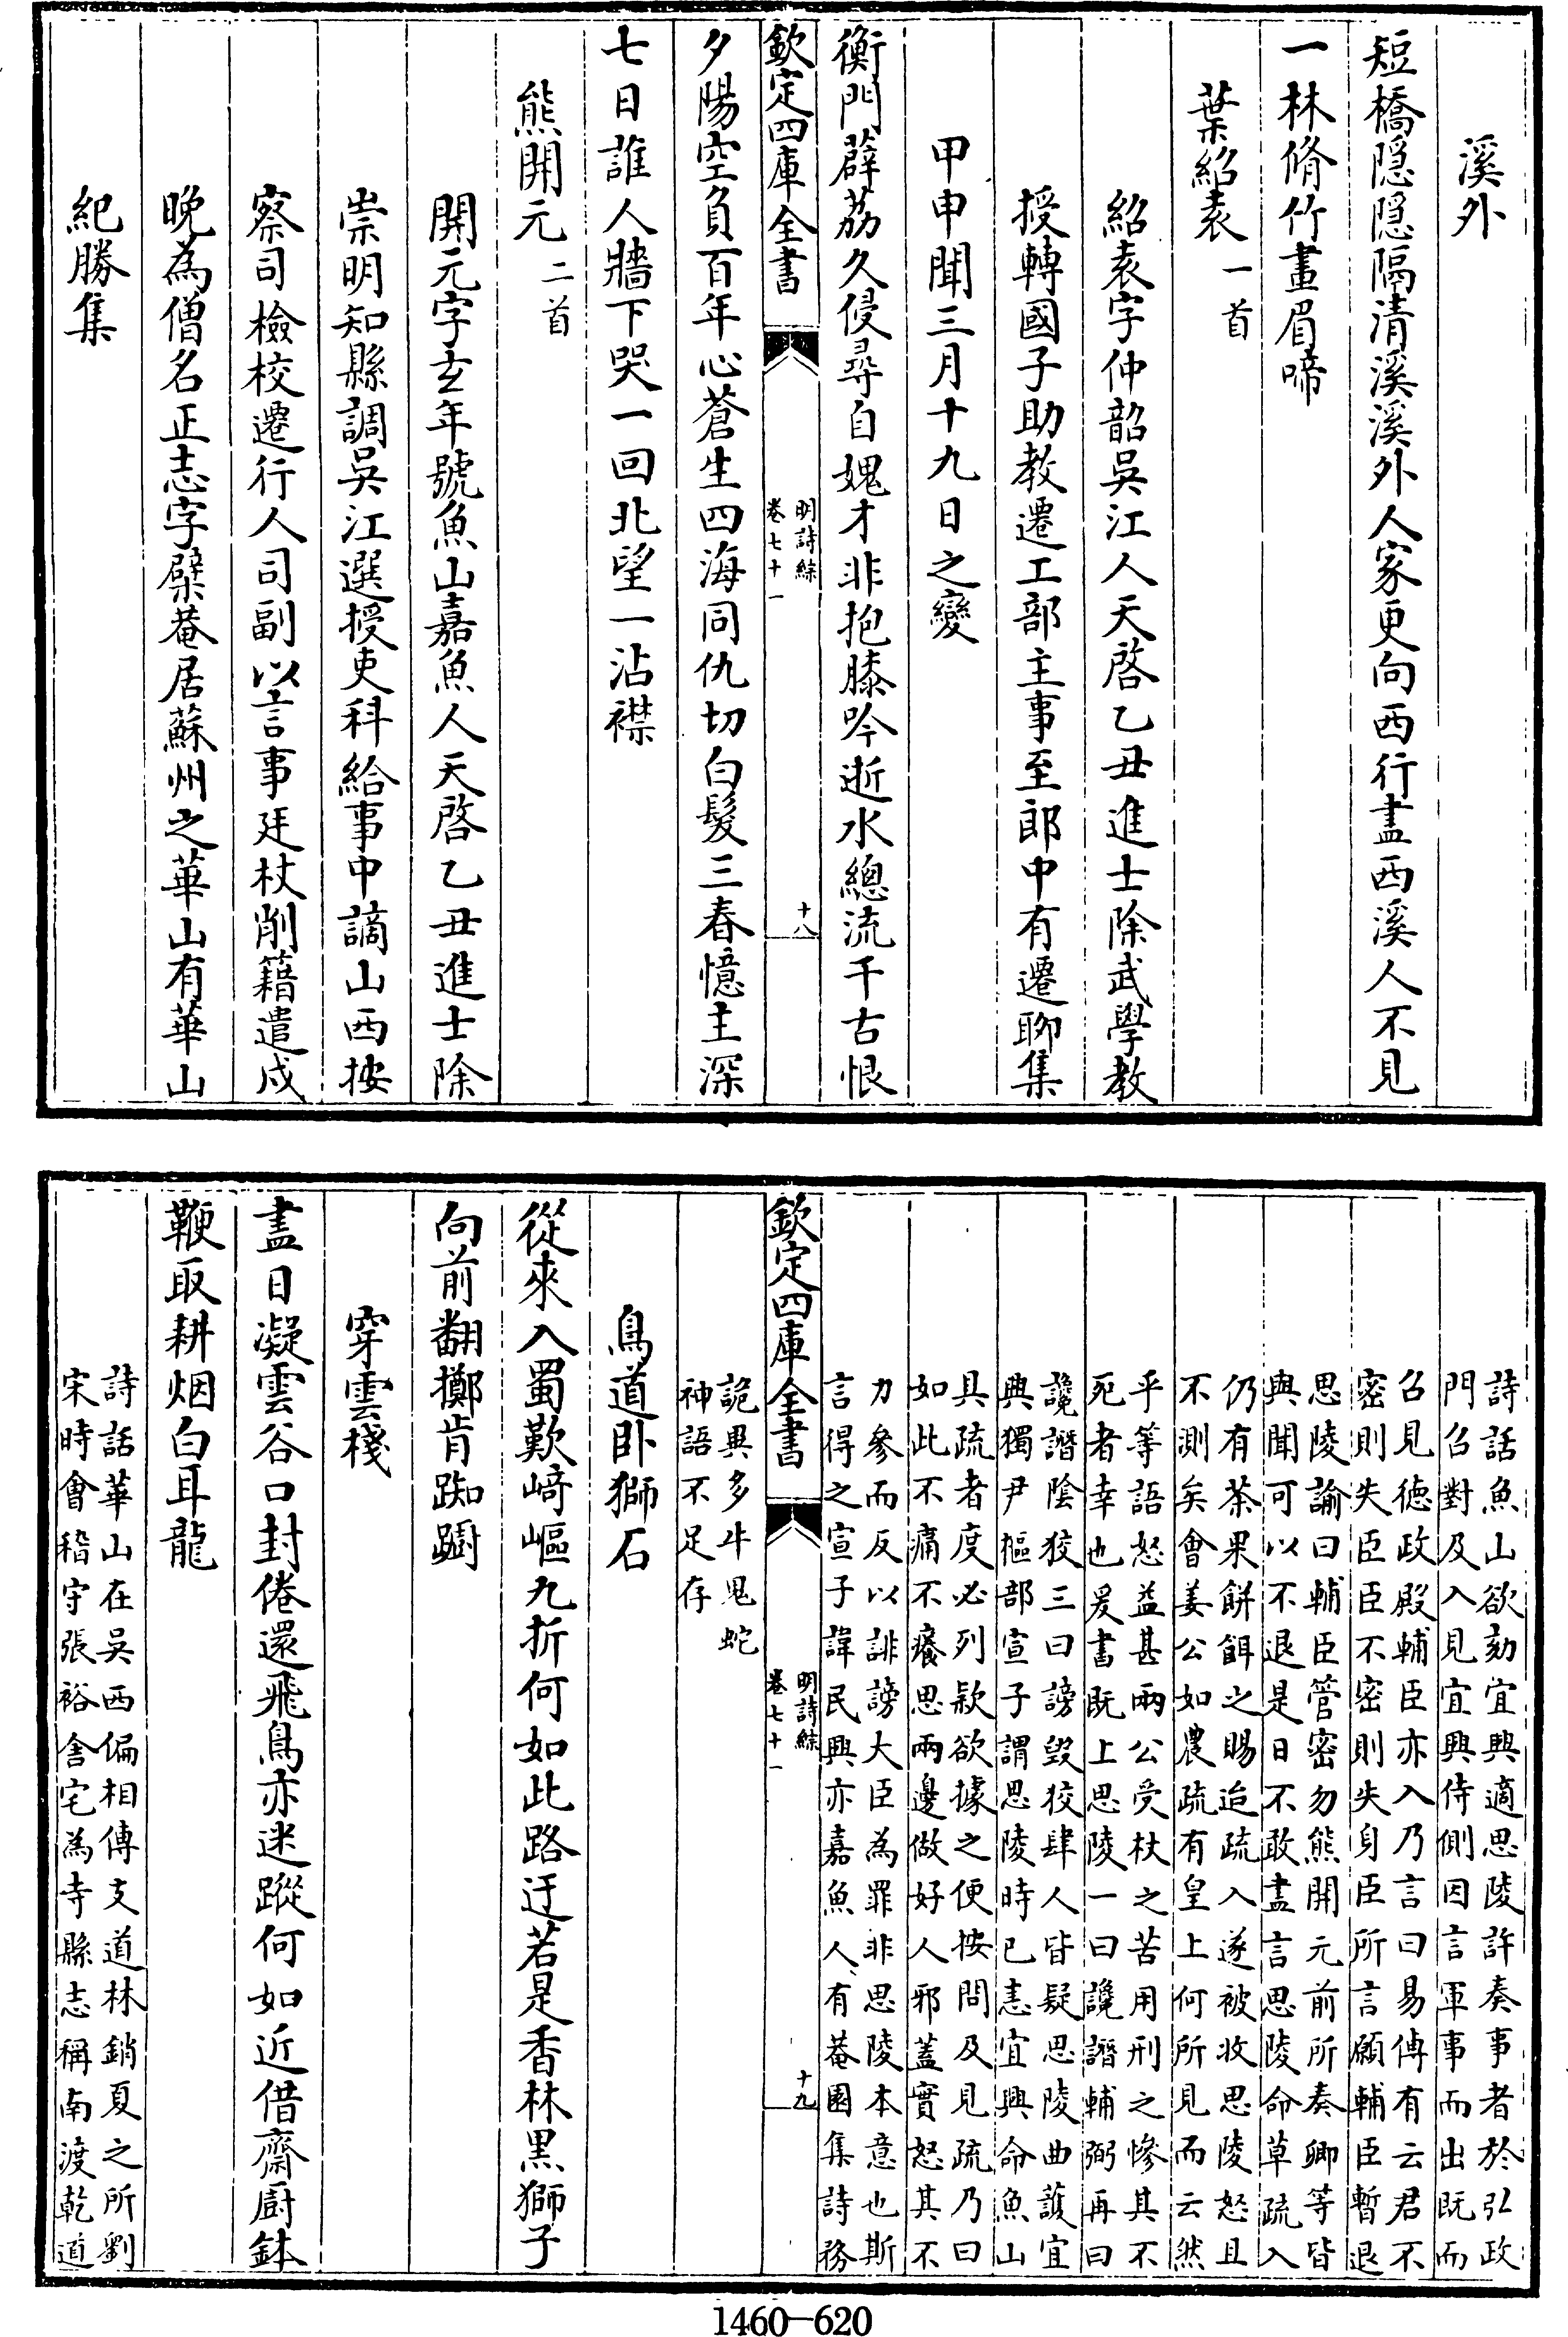 溪外
短橋隱隱隔清溪溪外人家更向西行盡西溪人不見
一林脩竹畫眉啼
葉紹袁一首
紹袁字仲韶吳江人天啓乙丑進士除武學教
授轉國子助教遷工部主事至郎中有遷聊集
甲申聞三月十九日之變
衡門薜荔久侵尋自媿才非抱膝吟逝水總流千古恨
欽定四庫全書
明詩綜
卷七十一
十八
夕陽空負百年心蒼生四海同仇切白髮三春憶主深
七日誰人牆下哭一回北望一沾襟
熊開元二首
開元字玄年號魚山嘉魚人天啓乙丑進士除
崇明知縣調吳江選授吏科給事中謫山西按
察司檢校遷行人司副以言事廷杖削籍遣戍
晚為僧名正志字檗菴居蘇州之華山有華山
紀勝集
詩話魚山欲劾宜興適思陵許奏事者於弘政
門召對及入見宜興侍側因言軍事而出既而
召見德政殿輔臣亦入乃言曰易傳有云君不
密則失臣臣不密則失身臣所言願輔臣暫退
思陵諭曰輔臣管密勿熊開元前所奏卿等皆
與聞可以不退是日不敢盡言思陵命草疏入
仍有茶果餅餌之賜迨疏入遂被收思陵怒且
不測矣會姜公如農疏有皇上何所見而云然
乎等語怒益甚兩公受杖之苦用刑之慘其不
死者幸也爰書既上思陵一曰讒譖輔弼再曰
讒譖陰狡三曰謗毀狡肆人皆疑思陵曲護宜
興獨尹樞部宣子謂思陵時已恚宜興命魚山
具疏者度必列款欲據之便按問及見疏乃曰
如此不痛不癢思兩邊做好人邪蓋實怒其不
力參而反以誹謗大臣為罪非思陵本意也斯
言得之宣子諱民興亦嘉魚人有菴園集詩務
欽定四庫全書
明詩綜
卷七十一
十九
詭異多牛鬼蛇
神語不足存
鳥道卧獅石
從來入蜀歎崎嶇九折何如此路迂若是香林黑獅子
向前翻擲肯踟躕
穿雲棧
盡日凝雲谷口封倦還飛鳥亦迷蹤何如近借齋厨鉢
鞭取耕烟白耳龍
詩話華山在吳西偏相傳支道林銷夏之所劉
宋時會稽守張裕舍宅為寺縣志稱南渡乾道
1460—620